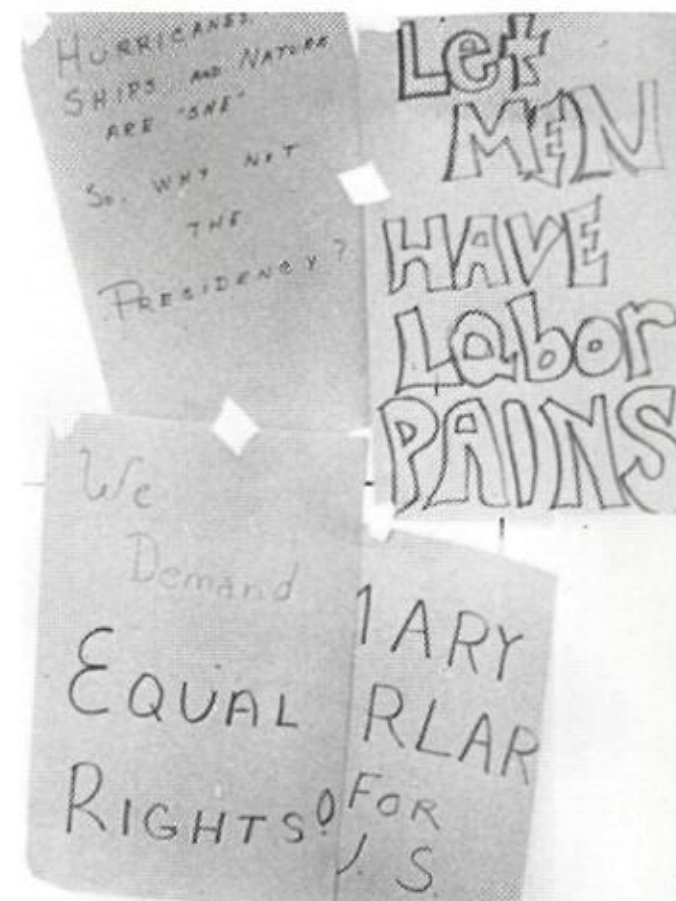 HURRICANES,
SHIPS AND NATURE
ARE "SHE"
SO, WHY NOT
THE
PRESIDENCY?
Let
MEN
HAVE
Labor
PAINS
We
Demand
EQUAL
RIGHTS!
ARY
RLAR
FOR
. S.